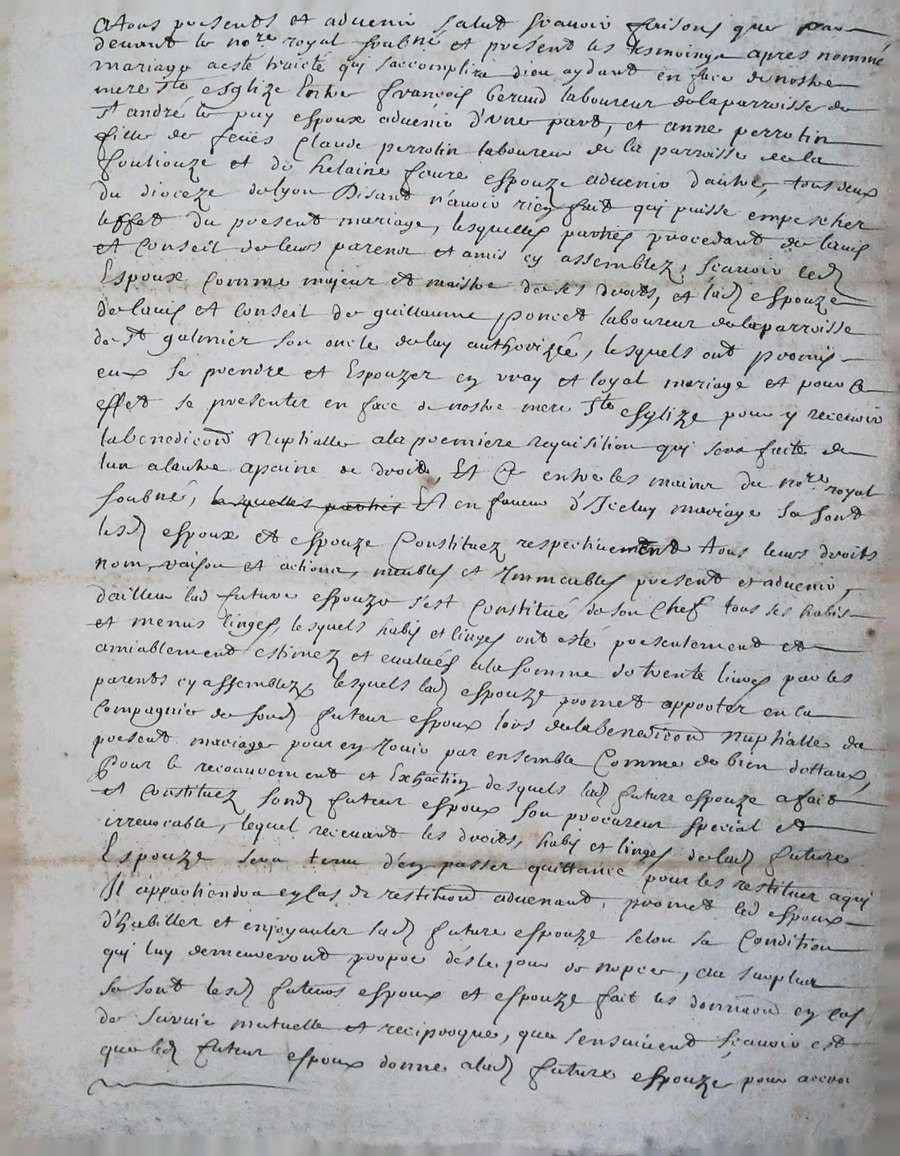 A tous presents et advenir salut scavoir faisons que par
devant le no.re royal soubné et present les tesmoings apres nommé
mariage a esté traicté qui s'accomplira dieu aydant en face de nostre
mere S.te esglize Entre françois Beraud laboureur de la parroisse de
S.t andré le puy espoux advenir d'une part, et anne perrotin
fille de feües Claude perrotin laboureur de la parroisse de la
fouliouze et de helaine faure espouze advenir d'autre, tous deux
du dioceze de lyon Disant n'avoir rien fait qui puisse empescher
leffet du present mariage, lesquelles parties procedant de lavis
et Conseil de leurs parens et amis cy assemblez, scavoir led.
Espoux comme majeur et maistre de ses droits, et lad. espouze
de lavis et conseil de guillaume poncet laboureur de la parroisse
de S.t galmier son oncle de luy authorizée, lesquels ont promis
eux se prendre et Espouzer en vray et loyal mariage et pour ce
effet se presenter en face de nostre mere S.te esglize pour y recevoir
la benedicõn Nuptialle a la premiere requisition qui sera faite de
lun a lautre apeine de droit, Et Ce entre les mains du no.re royal
soubné, lesquelles parties Et en faveur d'Iceluy mariage se sont
lesd. espoux et espouze Constituez respectivement tous leurs droits
nom, raison et actions, meubles et Immeubles present et advenir,
d'ailleur lad. future espouze s'est Constitué de son Chef tous ses habis
et menus linges, lesquels habis et linges ont esté presentement et
amiablement estimez et evalués a la somme de trente livres par les
parents cy assemblez lesquels lad. espouze promet apporter en la
Compagnie de sond. futeur espoux lors de la Benedicõn Nuptialle du
present mariage pour en Jouir par ensemble Comme de bien dottaux,
Pour le recouvrement et Exaction desquels lad. future espouze a fait
et Constituez sond. futeur espoux son procureur special et
irrevocable, lequel recevant les droits, habis et linges de lad. future
Espouze sera tenu d'en passer quittance pour les restituer a qui
Il appartiendra en Cas de restitucõn advenant, promet led. espoux
d'habiller et enjoyauler sad. future espouze selon sa Condition
qui luy demeureront propre dès le jour de nopces, au surplus
se sont lesd. futeurs espoux et espouze fait les donnaõn en Cas
de survie mutuelle et reciproque, que sensuivent Scavoir est
que led. futeur espoux donne a lad. future espouze pour